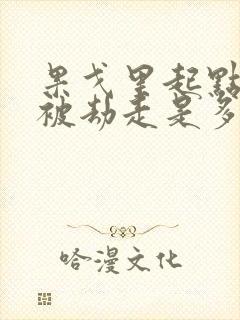 果戈里起點
被劫走是多
哈漫文化